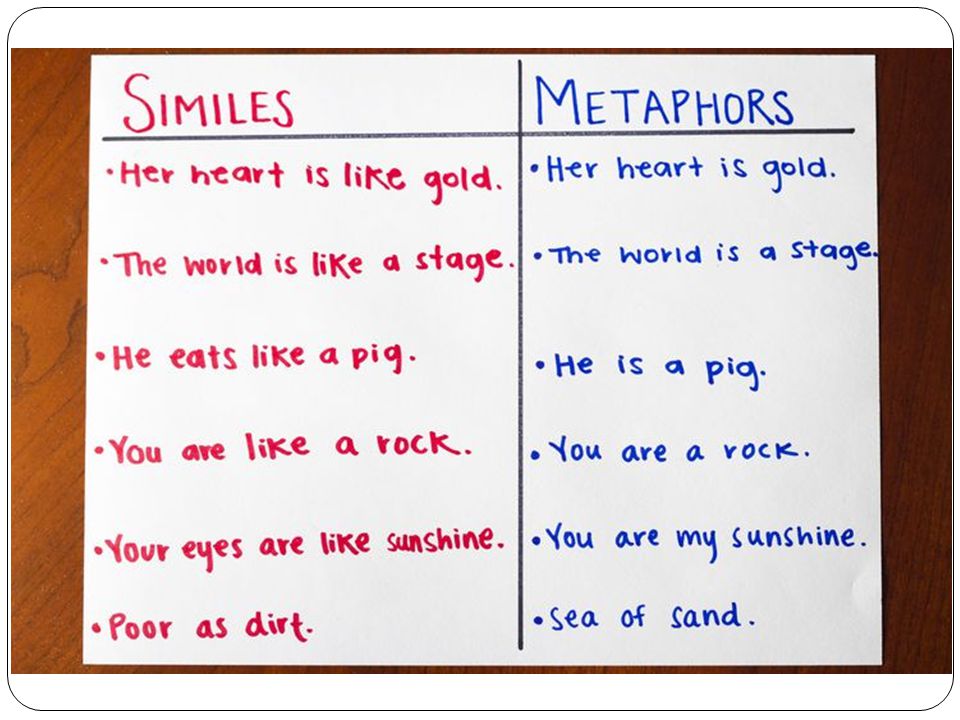 SIMILES
• Her heart is like gold.
• The world is like a stage.
• He eats like a pig.
• You are like a rock.
• Your eyes are like sunshine.
• Poor as dirt.
METAPHORS
• Her heart is gold.
• The world is a stage.
• He is a pig.
• You are a rock.
• You are my sunshine.
• Sea of sand.